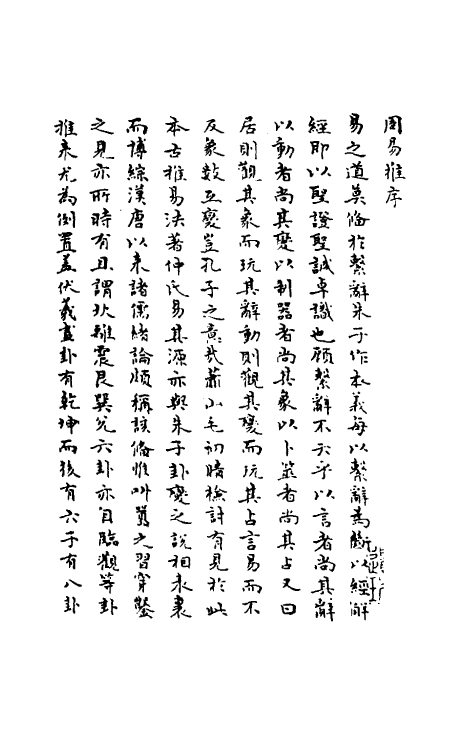 周易推序
易之道莫備於繫辭朱子作本義每以繫辭為斷以經解
經即以聖證聖誠卓識也顧繫辭不云乎以言者尚其辭
以動者尚其變以制器者尚其象以卜筮者尚其占又曰
居則觀其象而玩其辭動則觀其變而玩其占言易而不
及象數互變豈孔子之意哉蕭小毛初晴檢討有見於此
本古推易法著仲氏易其源亦與朱子卦變之說相表裏
而博綜漢唐以來諸儒緒論頗稱該備惟叫囂之習穿鑿
之見亦所時有且謂坎離震艮巽兌六卦亦自臨觀等卦
推來尤為倒置蓋伏羲畫卦有乾坤而後有六子有八卦